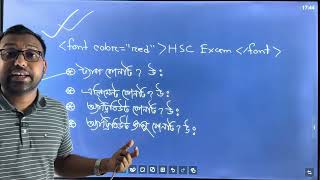 <font color="red">HSC Exam</font>
ট্যাগ কোনটি? উ:
এলিমেন্ট কোনটি? উ:
অ্যাট্রিবিউট কোনটি? উ:
অ্যাট্রিবিউট ভ্যালু কোনটি? উ:
17:44